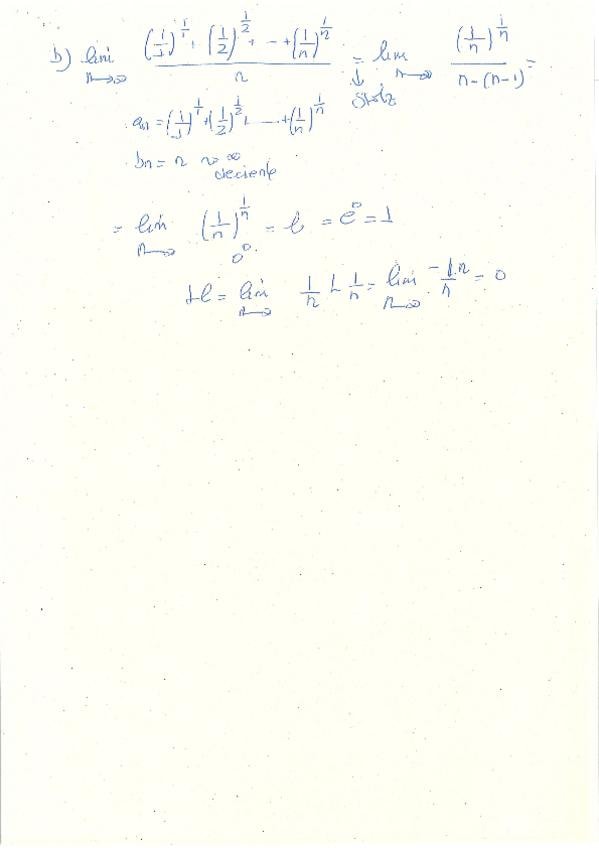 b) lim n→∞ ((1/1)^(1/1) + (1/2)^(1/2) + ... + (1/n)^(1/n)) / n = lim n→∞ (1/n)^(1/n) / (n-(n-1)) =
↓
Stolz
an = (1/1)^(1/1) + (1/2)^(1/2) + ... + (1/n)^(1/n)
bn = n → ∞
creciente
= lim n→∞ (1/n)^(1/n) = l = e^0 = 1
0^0
Ll = lim n→∞ 1/n L 1/n = lim n→∞ -Ln/n = 0